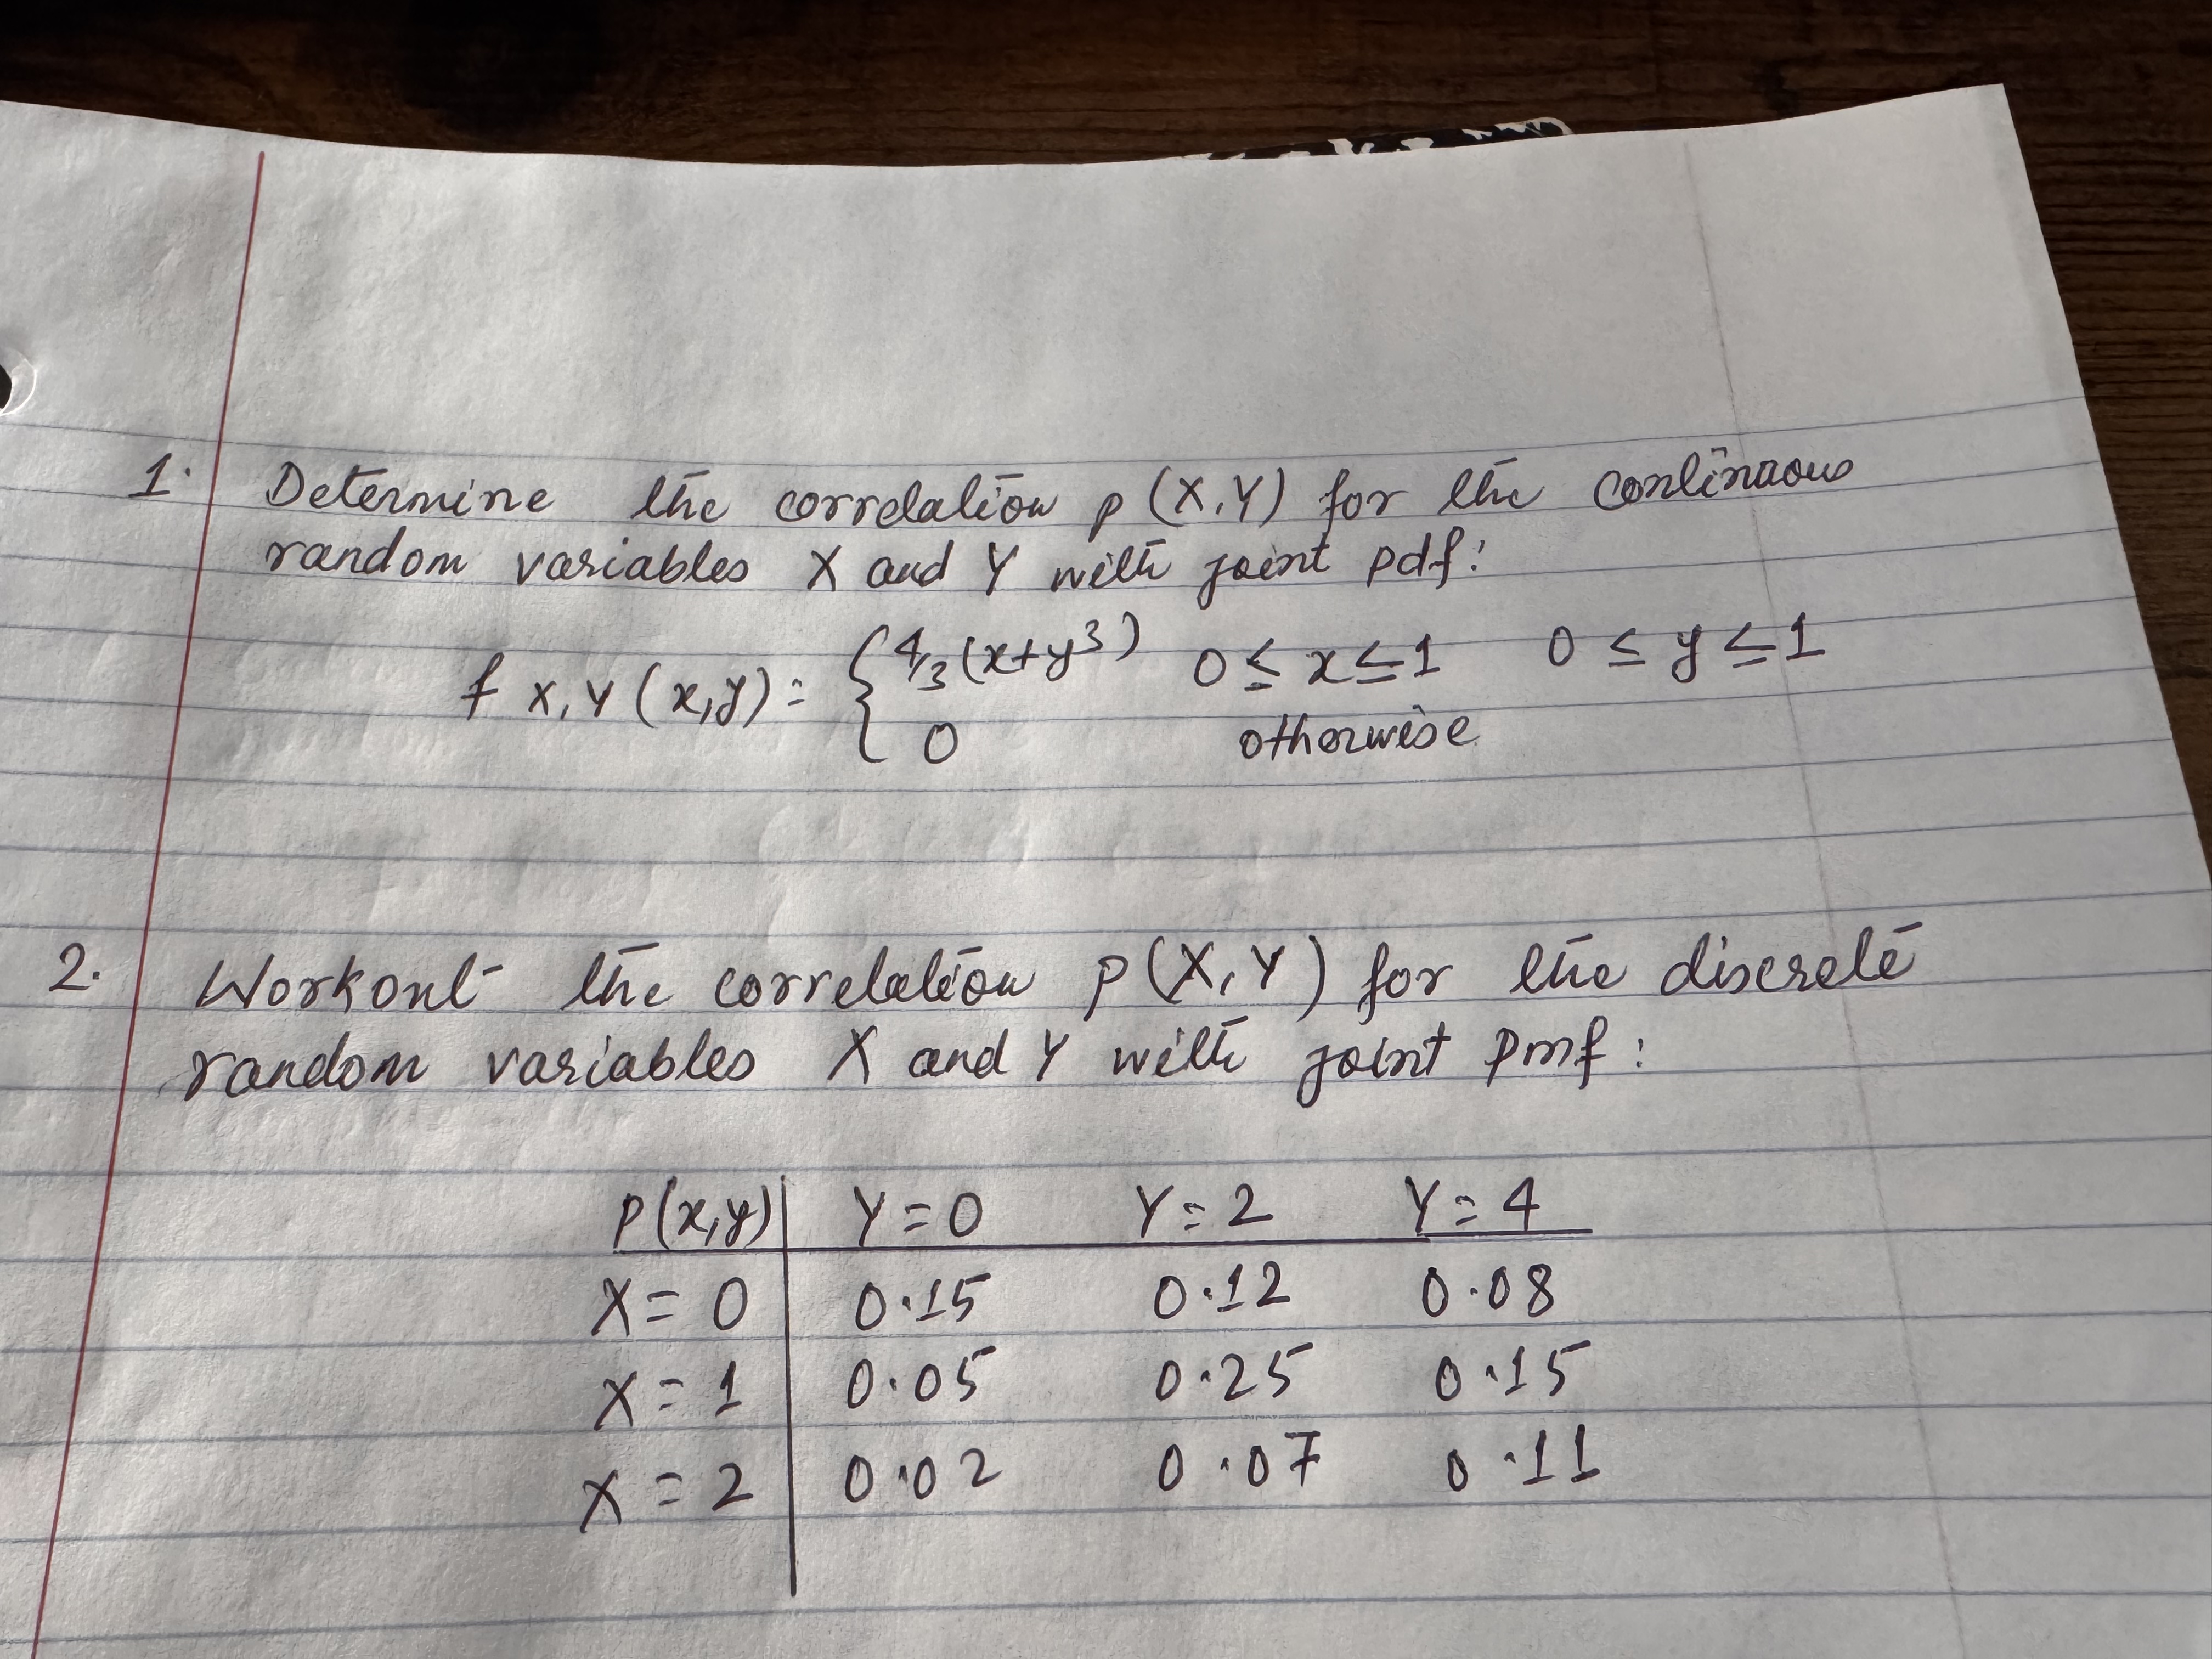 1. Determine the correlation p (X,Y) for the continuous
random variables X and Y with joint pdf:
f X,Y (x,y) = { 4/3 (x+y³) 0 ≤ x ≤ 1 0 ≤ y ≤ 1
0 otherwise
2. Workout the correlation p (X,Y) for the discrete
random variables X and Y with joint pmf:
P(x,y) Y = 0 Y = 2 Y = 4
X = 0 0.15 0.12 0.08
X = 1 0.05 0.25 0.15
X = 2 0.02 0.07 0.11